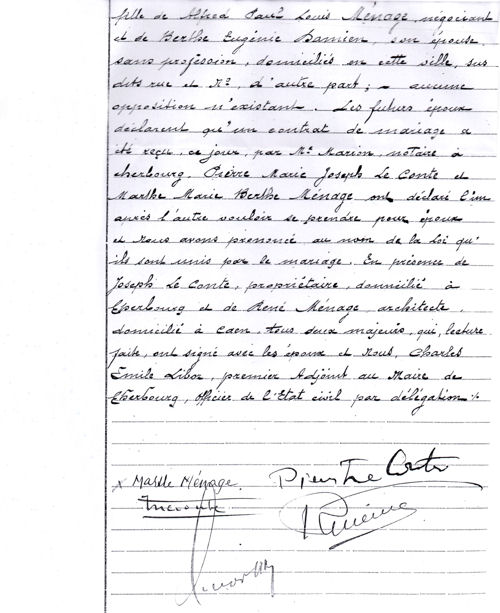 fille de Alfred Paul Louis Ménage, négociant
et de Berthe Eugénie Damien, son épouse,
sans profession, domiciliés en cette ville, sus
dits rue et No, d'autre part; - aucune
opposition n'existant. Les futurs époux
déclarent qu'un contrat de mariage a
été reçu, ce jour, par Me Marion, notaire à
Cherbourg. Pierre Marie Joseph Le Conte et
Marthe Marie Berthe Ménage ont déclaré l'un
après l'autre vouloir se prendre pour époux
et Nous avons prononcé au nom de la Loi qu'
ils sont unis par le mariage. En présence de
Joseph Le Conte, propriétaire, domicilié à
Cherbourg et de René Ménage, architecte,
domicilié à Caen, tous deux majeurs, qui, lecture
faite, ont signé avec les époux et Nous, Charles
Emile Libor, premier Adjoint au Maire de
Cherbourg, officier de l'Etat civil par délégation ./.
Ménage
Pierre Le Conte